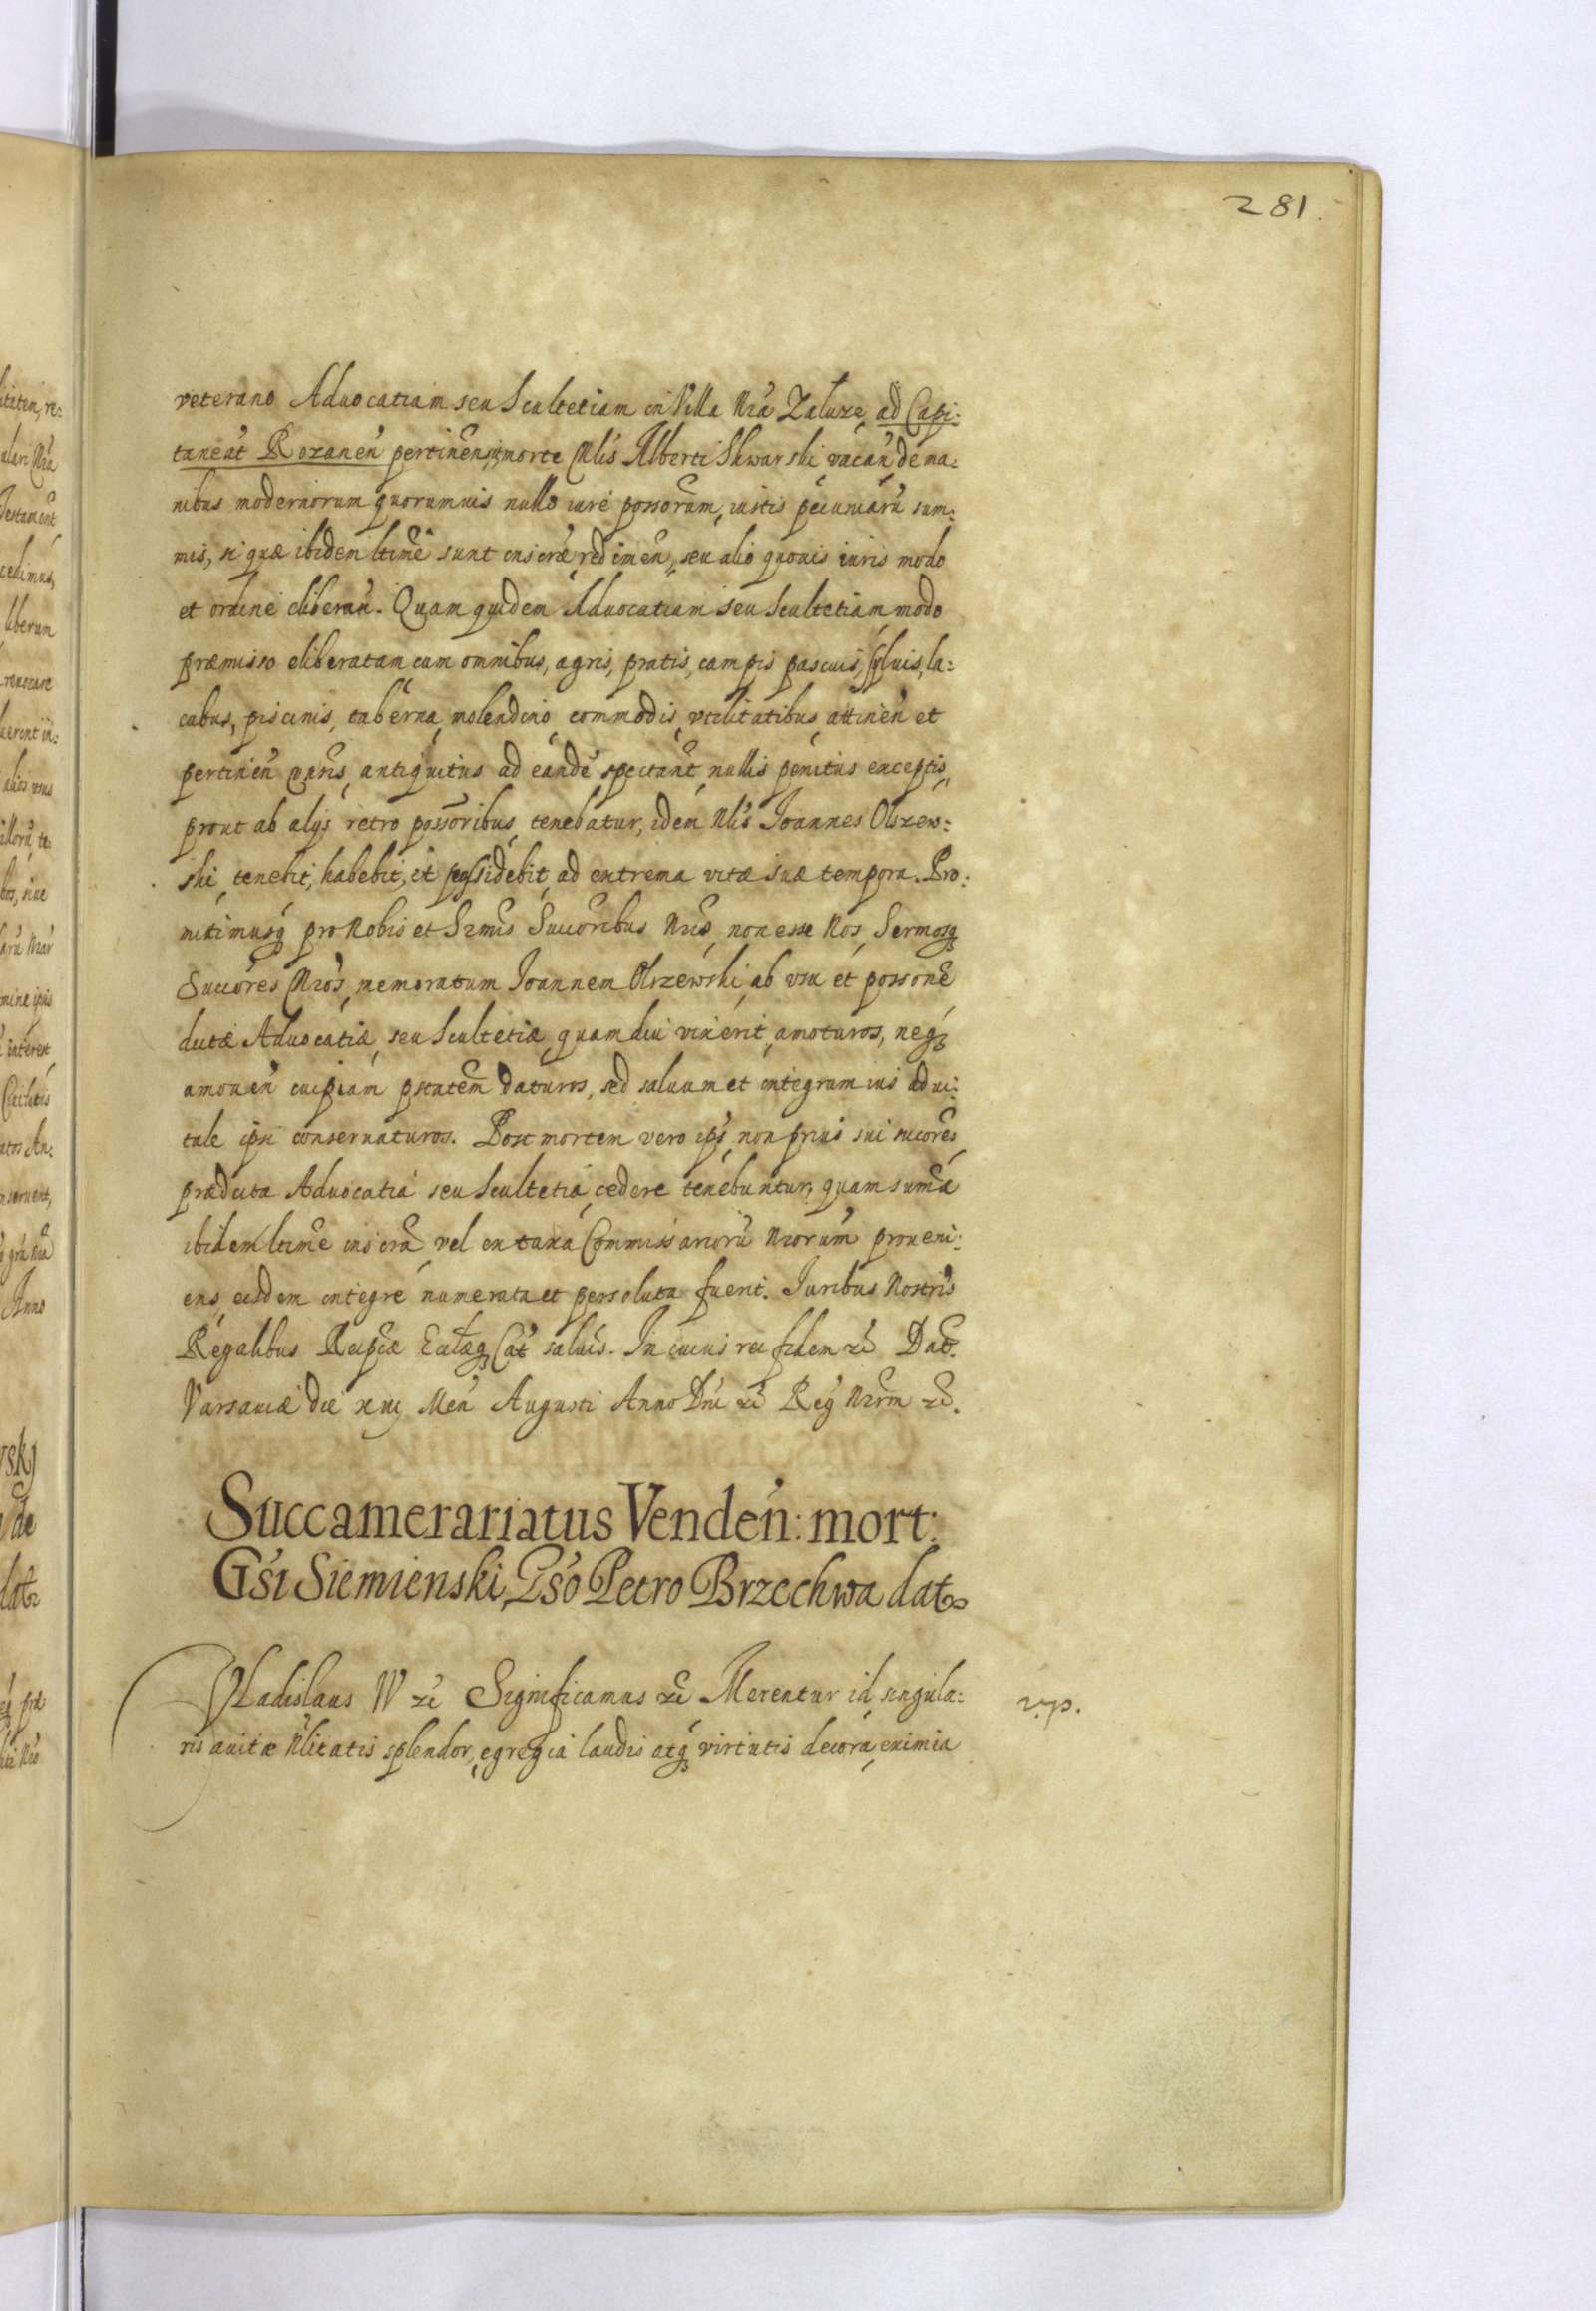 281.
veterano Aduocatiam seu Scultetiam in Villa Nrã Załuze, ad Capi:
taneat Rozanen̄ pertinen̄, morte Nlis Alberti Skwarski vacan̄, de ma:
nibus modernorum quorumuis nullo iure possorum, iustis pecuniarū sum:
mis, si quæ ibidem ltime sunt inscræ, redimen̄, seu alio quouis iuris modo
et ordine eliberan̄. Quam quidem Aduocatiam seu Scultetiam, modo
præmisso eliberatam cum omnibus, agris, pratis, campis pascuis, syluis, la:
cubus, piscinis, taberna, molendino, commodis, vtilitatibus, attinen̄ et
pertinen̄ vnīs, antiquitus ad eandē spectant, nullis penitus exceptis,
prout ab alijs retro possoribus, tenebatur, idem Nlis Ioannes Olszew:
ski, tenebit, habebit, et possidebit, ad extrema vitæ suæ tempora. Pro:
mittimusq̨ pro Nobis et Srmis Succoribus Nrīs, non esse Nos, Sermosq̨
Succores Nros, memoratum Ioannem Olszewski, ab vsu et possone
dictæ Aduocatiæ, seu Scultetiæ, quamdiu vixerit, amoturos, neq̨
amouen̄ cuipiam ptatem daturos, sed saluum et integrum ius adui:
tale ipsi conseruaturos. Post mortem vero ips̄, non prius sui succores,
prædicta Aduocatia seu Scultetia, cedere tenebuntur, quam summa
ibidem ltime inscra, vel ex taxa Commissariorū Nrorum proueni:
ens, eisdem integre numerata et persoluta fuerit. Iuribus Nostris
Regalibus Reipcæ Ecclæq̨ Cat saluis. In cuius rei fidem etc̄ Dat.
Varsauiæ die Men̄ Augusti Anno Dni etc̄ Reg̃ Nrrm etc̄.
Succamerariatus Venden̄: mort:
Gsi Siemienski, Gso Petro Brzechwa dat
Vladislaus IV etc̄ Significamus etc̄ Merentur id singula:
ris auitæ Nlitatis splendor, egregia laudis atq̨ virtutis decora, eximia